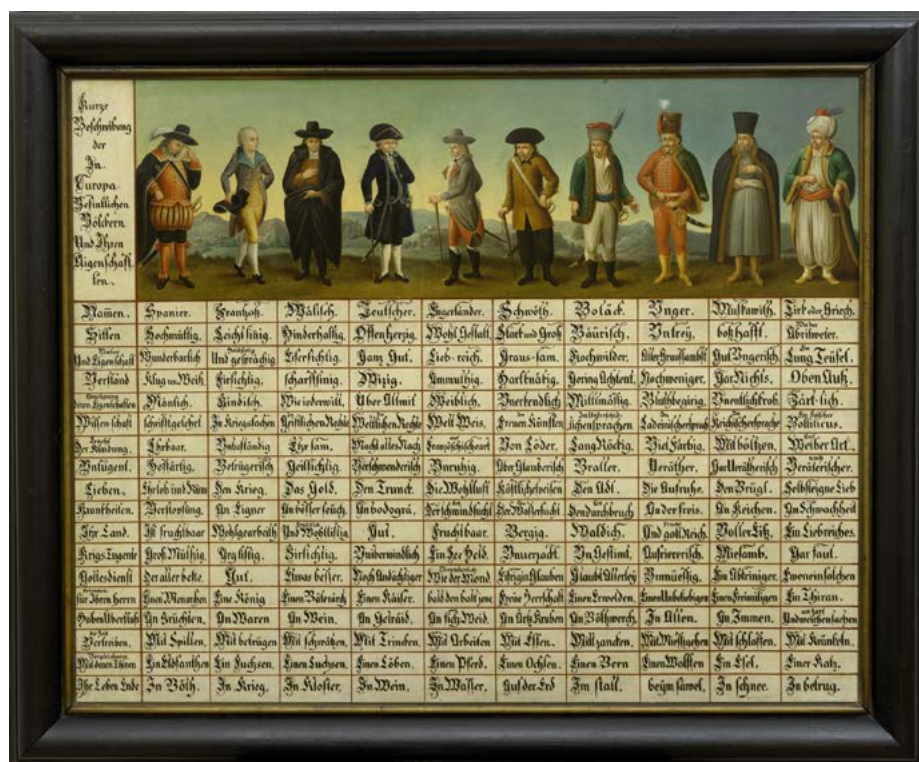 Kurze
Beschreibung
der
In
Europa
Befintlichen
Völckern
Und Ihren
Aigenschaff
ten.
Namen. Spanier. Frantzoß. Wälisch. Teutscher. Engerländer. Schwöth. Boläck. Unger. Muskawith. Tirk oder Griech.
Sitten Hochmüttig. Leichtsinig. Hinderhaltig. Offenherzig. Wohl Gestalt. Starck und Groß Bäurisch. Untrey. boßhafft. Wie das Abrilweter.
Und Eigenschaft Wunderbarlich Und gesprächig Eifersichtig. Ganz Gut. Lieb-reich. Graus-sam. Gut Ungerisch. Lung Teüfel.
Verstand Klug un Weiß. Firsichtig. scharffsinig. Wizig. Ammuthig. Hartknätig. Gering Achtent. Nochweniger. Gar Nichts. Oben Auß.
deren Eigenschaften Mänlich. Kindisch. Wie iederwill. Über Allmit Weiblich. Unerkendlich Mittlmäsig. Bluthbegürig. Unentlichkrob. Zärt-lich.
Wissenschaft schrifftgelehrt In Kriegssachen Geistlichen Rechte Weltlichen Rechte Welt Weis. In Freuen Künsten In Lateinischersprach In Krichischersprache Ein Falscher Bolliticus.
Der Klaidung. Ehrbaar. Unbeständig Ehrsam. Macht alles Nach Französischeart Von Löder. Lang Röckig. Viel Färbig. Mit böltzen. Weiber Art.
Untugent. Hoffärtig. Betrügerisch Geillsichtig. Verschwenderisch Unruhig. Aber Glauberisch Braller. Veräther. Gar Verätherisch Verätterischer.
Lieben. Ehrlob und Rüm Den Krieg. Das Gold. Den Trunck. Die Wohllust Köstliche speisen Den Adl. Die Aufruhe. Den Brügl. Selbsteigne Lieb
Krankheiten. Verstopfung. An Eigner An bösser seüch. An bodogrä. Der schwindsucht Der Wassersucht Den durchbruch An der freis. An Keichen. An Schwachheit
Ihr Land. Ist fruchtbaar Wohlgearbeith Und Wohllistig Gut. Fruchtbaar. Bergig. Waldich. Und goltReich. Voller Eiß. Ein Liebreiches.
Krigs Tugente Groß Müthig. Arg listig. Firsichtig. Unüberwindlich Ein See Held. Unverzackt. Un Gestimt. Aufriererisch. Miesamb. Gar faul.
Gottesdienst Der aller beste. Gut. Etwas besser. Noch Andächtiger Wie der Mond Eifrig in Glauben Glaubt Allerley Unmüessig. Ein Abtriniger. Eweneinsolchen
für Ihren herrn Einen Monarchen Eine König Einen Bäterärch Einen Käiser. bald den balt jene Freie Herrschaft Einen Erwelden. Einen Unbeliebigen Einen Freimiligen Ein Thiran.
Haben Uberfluß An Früchten. An Waren An Wein. An Getraid. An fich Weid. An Artz Kruben An Böltzwerch. In Allen. An Immen. Und weichen sachen
Vertreiben. Mit Spillen. Mit betrügen Mit schwätzen. Mit Trincken. Mit Arbeiten Mit Essen. Mit zancken. Mit Miessigehen Mit schlaffen. Mit Kränkeln.
Mit denen Thiren Ein Elofanthen Ein Fuchsen. Einen Luchsen. Einen Löben. Einen Pferd. Einen Ochsen. Einen Bern Einen Wolffen Ein Esel. Einer Katz.
Ihr Leben Ende In Böth. In Krieg. In Kloster. In Wein. In Wasser. Auf der Erd Im stall. beÿm säwel. In schnee. In betrug.